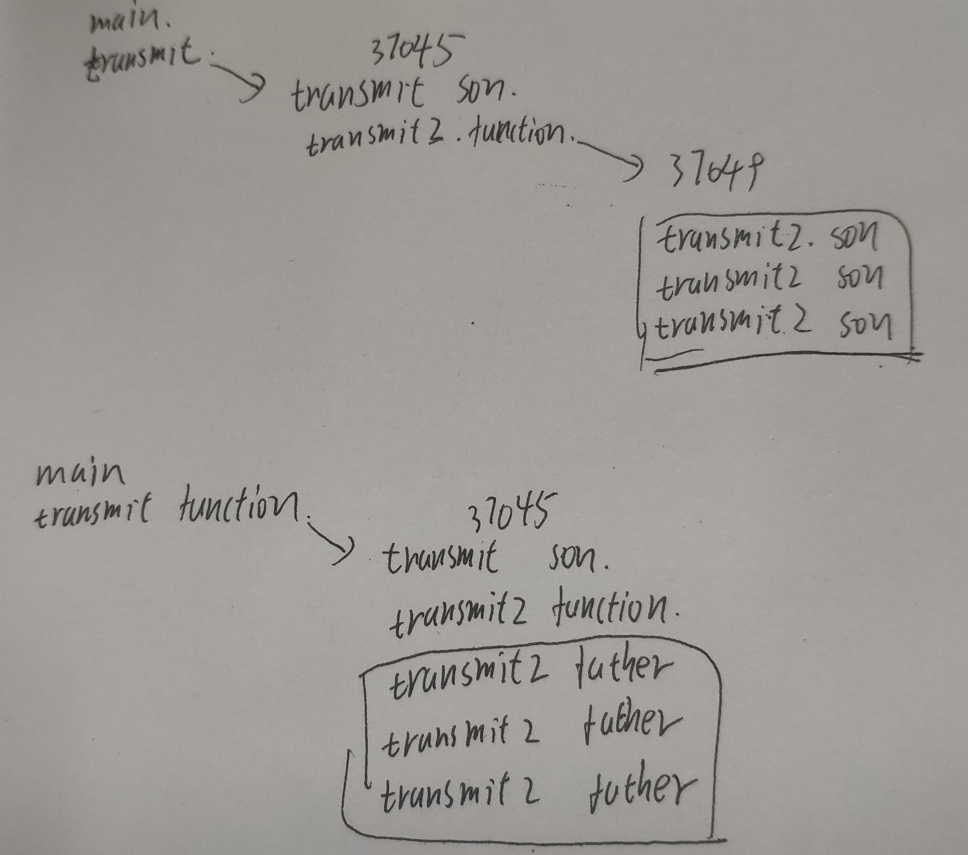 main.
transmit.
37045
transmit son.
transmit2.function.
37049
transmit2. son
transmit2 son
transmit2 son
main
transmit function.
37045
transmit son.
transmit2 function.
transmit2 father
transmit2 father
transmit2 father